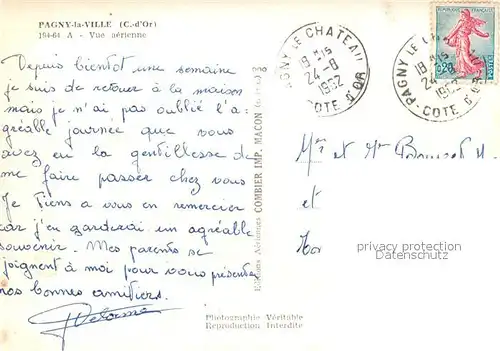 PAGNY-la-VILLE (C.-d'Or)
194-64 A - Vue aérienne
Depuis bientot une semaine
je suis de retour à la maison
mais je n'ai pas oublié l'a-
gréable journée que vous
avez eu la gentillesse de
me faire passer chez vous
Je tiens a vous en remercier
car j'en garderai un agréable
souvenir. Mes parents se
joignent à moi pour vous présenter
nos bonnes amitiers.
Delorme
Editions Aériennes COMBIER IMP. MACON
PAGNY LE CHATEAU
18 H15
24-8
1962
COTE D'OR
PAGNY LE
18 H15
24-8
1962
COTE D'OR
REPUBLIQUE FRANCAISE
0,20
POSTES
Mr et Mme
et
protection copyright
Datenschutz
Photographie Véritable
Reproduction Interdite